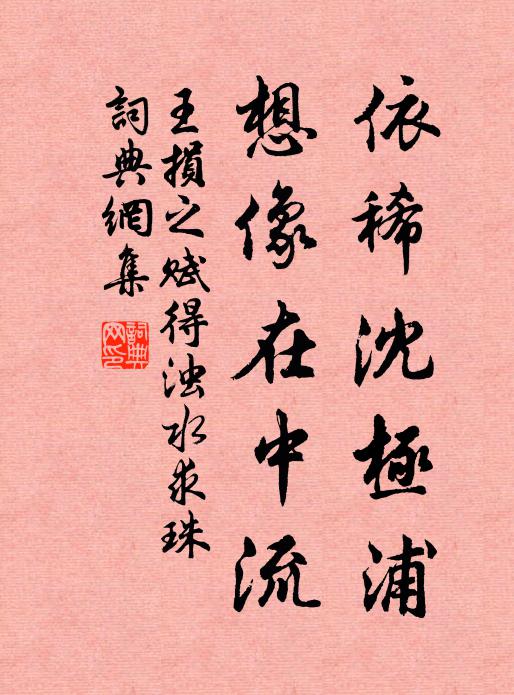 依稀沈極浦
想像在中流
王損之賦得浊水求珠
詞典網集
詞典網印